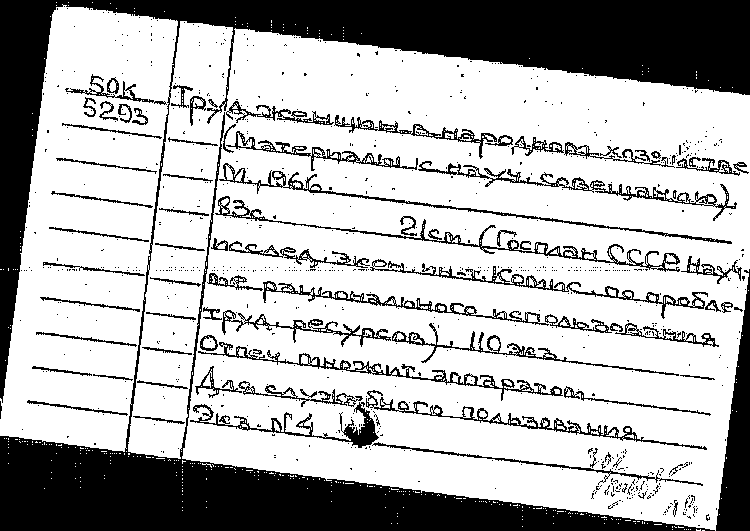 50К
5293
Труд женщин в народном хозяйстве
(Материалы к науч. совещанию).
М., 1966.
83с. 21см. (Госплан СССР. Науч.
исслед. экон. ин-т. Комис. по пробле-
ме рационального использования
труд. ресурсов). 110 экз.
Отпеч. множит. аппаратом.
Для служебного пользования.
Экз. №4
1В.